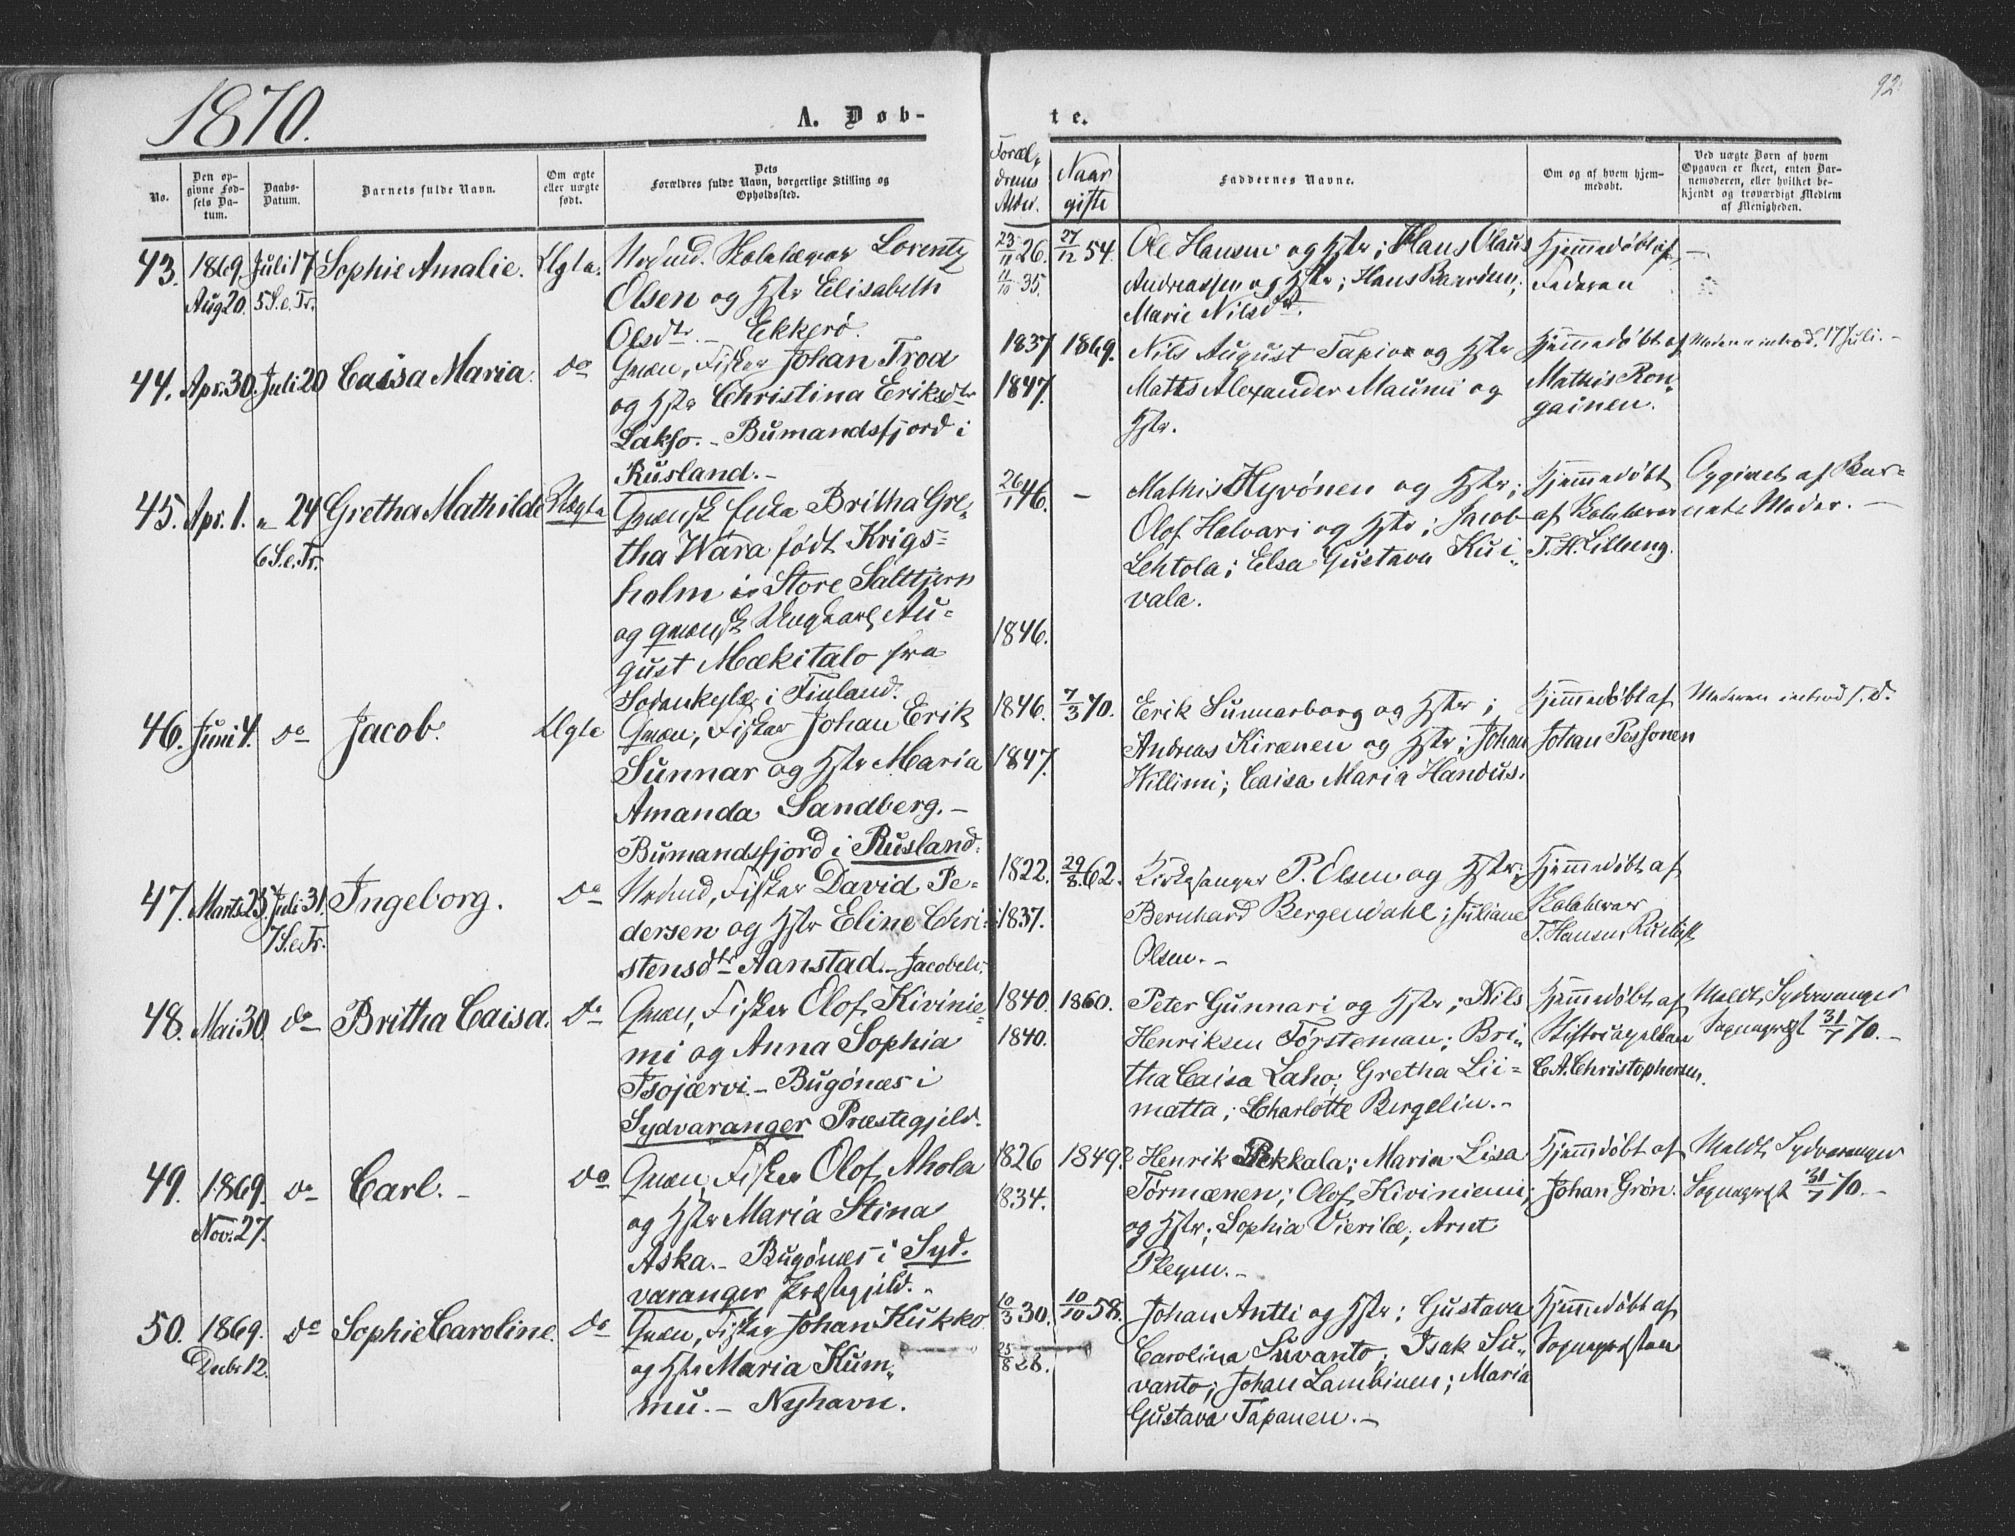 92.
1870.
A. Døb-
te.
No.
Den opgivne Fødsels Datum.
Daabs-Datum.
Barnets fulde Navn.
Om ægte eller uægte født.
Dets Forældres fulde Navn, borgerlige Stilling og Opholdssted.
Foræl-
drenes
Alder.
Naar
gifte
Faddernes Navne.
Om og af hvem hjem-
medøbt.
Ved uægte Børn af hvem
Opgaven er skeet, enten Bar-
nemoderen, eller hvilket be-
kjendt og troværdigt Medlem
af Menigheden.
43. 1869 Juli 17 Sophie Amalie. Ægte.
Aug 20. 5 S. e. Tr.
Lorentz
Olsen og Hstr Elisabeth
Olsdtr. – Ekkerø.
23/11 26. 27/12 54.
11/10 35.
Ole Hansen og Hstr; Hans Olaus
Andreassen og Hstr; Hans Baardsen;
Marie Nilsdtr.
Hjemmedøbt af
Faderen
–
44. Apr. 30. Juli 20 Caisa Maria. do
Qvæn, Fisker Johan Trod
og Hstr Christina Eriksdtr
Lakso. – Bumandsfjord i
Rusland. –
1837 1869.
1847.
Nils August Tapio og Hstr
Matts Alexander Maunu og
Hstr.
Hjemmedøbt af
Mathis Ron-
gainen.
Moderen introd. 17 Juli. –
45. Apr. 1. " 24 Gretha Mathilde Uægte
6 S. e. Tr.
Qvænsk Britha Gre-
tha Wara født Krigs-
holm i Store Saltfjern
og qvænsk Ungkarl Au-
gust Mækitalo fra
Sodankylæ i Finland.
26/1 46. –
1846.
Mathis Hyvönen og Hstr;
Olof Halvari og Hstr; Jacob
Lehtola; Elsa Gustava Kui-
vala.
Hjemmedøbt
af Kolalærer
T. H. Lilleeng.
Opgivet af Bar-
nets Moder. –
46. Juni 4. do Jacob. Ægte
Qvæn, Fisker Johan Erik
Sunnar og Hstr Maria
Amanda Sandberg. –
Bumandsfjord i Rusland.
1846. 7/3 70.
1847.
Erik Sunnarborg og Hstr;
Andreas Kirænen og Hstr; Johan
Willimi; Caisa Maria Handus.
Hjemmedøbt af
Johan Pessonen
Moderen introd. s. d.
47. Marts 25 Juli 31. Ingeborg. do
7 S. e. Tr.
Fisker David Pe-
dersen og Hstr Eline Chri-
stensdtr Aanstad. – Jacobelv.
1822. 29/8 62.
1837.
Kirkesanger P. Olsen og Hstr;
Bernhard Bergendahl; Juliane
Olsen. –
Hjemmedøbt af
T. Hansen,
48. Mai 30 do Britha Caisa. do
Qvæn, Fisker Olof Kivinie-
mi og Anna Sophia
Isojærvi. – Bugönæs i
Sydvaranger Præstegjeld.
1840. 1860.
1840.
Peter Gunnari og Hstr; Nils
Henriksen Førsteman; Bri-
tha Caisa Laho; Gretha Lii-
matta; Charlotte Bergelin. –
Hjemmedøbt af
C. A. Christophersen.
Meldt, Sydvaranger
Sognepræst 31/7 70. –
49. 1869. do Carl. – do
Nov. 27.
Qvæn, Fisker Olof Ahola
og Hstr Maria Stina
Aska. – Bugönæs i Syd-
varanger Præstegjeld. –
1826 1849
1834.
Henrik Pekkala; Maria Lisa
Törmænen; Olof Kiviniemi
og Hstr; Sophia Vierilæ; Arnt
Pleyen. –
Hjemmedøbt af
Johan Grön.
Meldt, Sydvaranger
Sognepræst 31/7 70. –
50. 1869. do Sophie Caroline. do
Decbr 12.
Qvæn, Fisker Johan Kukko
og Hstr Maria Kum-
mu. – Nyhavn.
10/3 30. 10/10 58.
25/8 28.
Johan Antti og Hstr; Gustava
Carolina Suvanto; Isak Su-
vanto; Johan Lambinen; Maria
Gustava Tapanen. –
Hjemmedøbt af
Sognepræsten